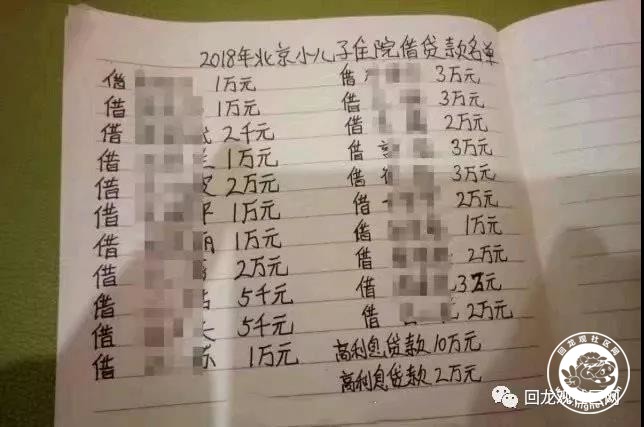 2018年北京小儿子住院借贷款名单
借 1万元
借 1万元
借 2千元
借 1万元
借 2万元
借 1万元
借 1万元
借 2万元
借 5千元
借 5千元
借 1万元
借 3万元
借 3万元
借 2万元
借 3万元
借 3万元
借 2万元
借 1万元
借 2万元
借 3万元
借 2万元
高利息贷款10万元
高利息贷款2万元
回龙观社区网
回龙观社区网